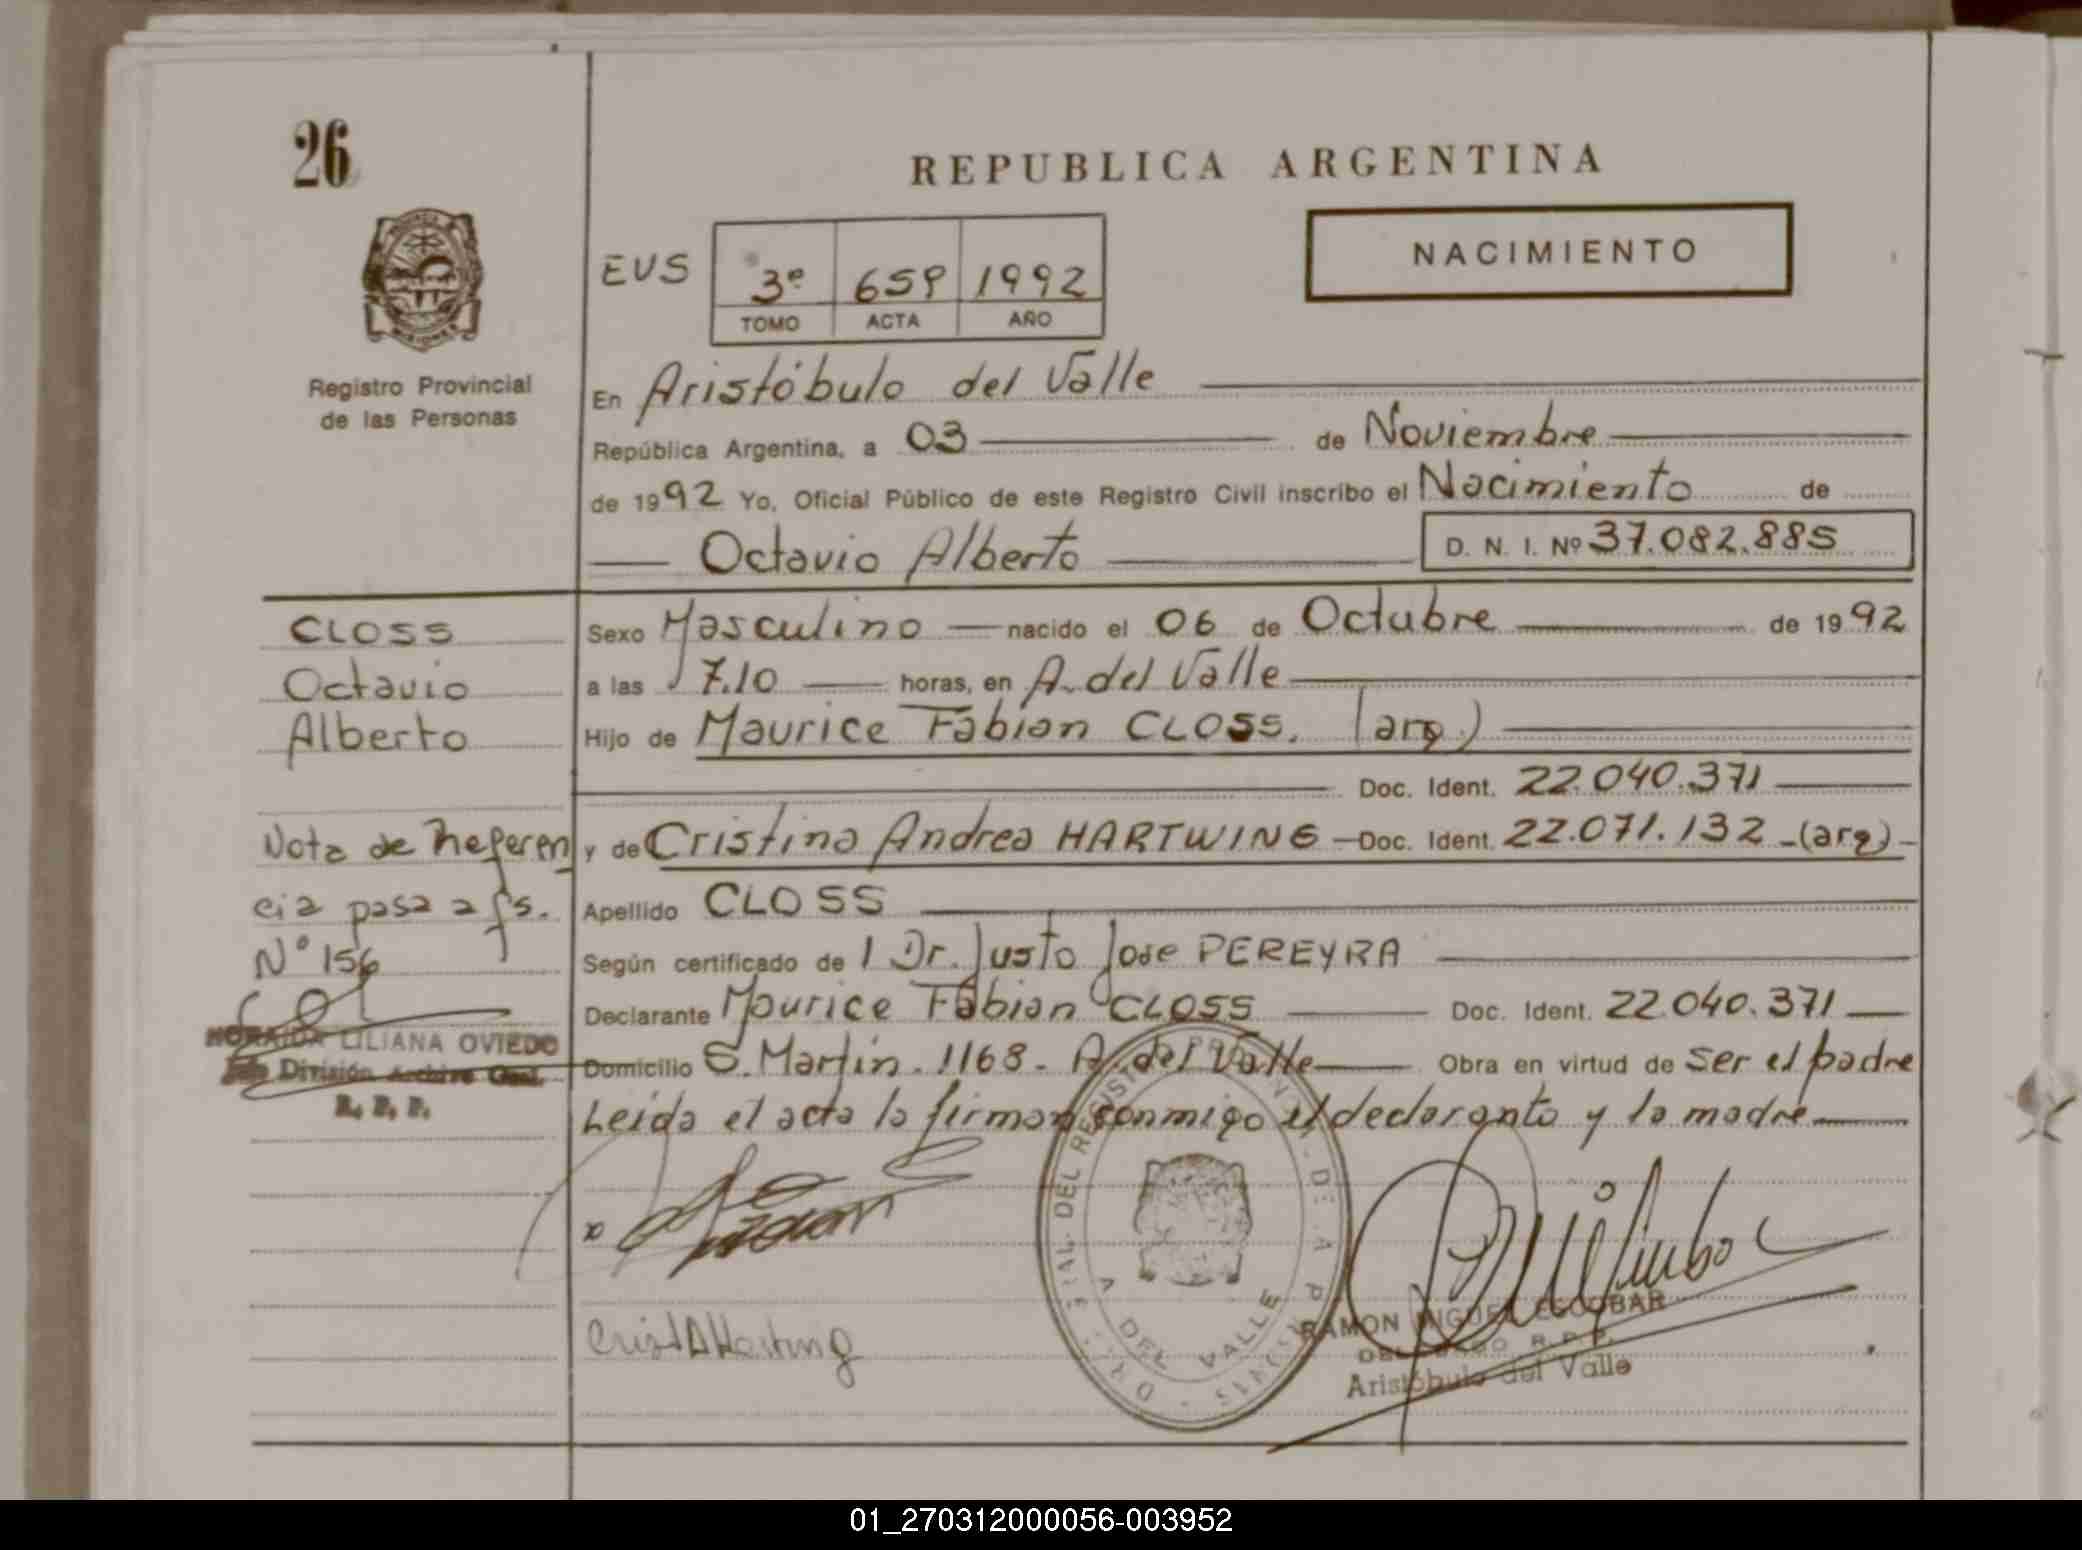 26
REPUBLICA ARGENTINA
NACIMIENTO
EVS 3º 659 1992
TOMO ACTA AÑO
Registro Provincial
de las Personas
En Aristóbulo del Valle
República Argentina, a 03 de Noviembre
de 1992 Yo, Oficial Público de este Registro Civil inscribo el Nacimiento de
Octavio Alberto D. N. I. Nº 37.082.885
CLOSS
Octavio
Alberto
Nota de Referen
cia pasa a fs.
Nº 156
HORAIDA LILIANA OVIEDO
Jefe División Archivo Gral.
R. P. P.
Sexo Masculino nacido el 06 de Octubre de 1992
a las 7.10 horas, en A. del Valle
Hijo de Maurice Fabian CLOSS. (arg)
Doc. Ident. 22.040.371
y de Cristina Andrea HARTWING - Doc. Ident. 22.071.132 - (arg) -
Apellido CLOSS
Según certificado de l Dr. Justo Jose PEREYRA
Declarante Maurice Fabian CLOSS Doc. Ident. 22.040.371
Domicilio S. Martin. 1168 - A. del Valle Obra en virtud de ser el padre
Leida el acta la firman conmigo el declarante y la madre
A DEL VALLE
RAMON MIGUEL ESCOBAR
R. P. P.
Aristóbulo del Valle
01_270312000056-003952